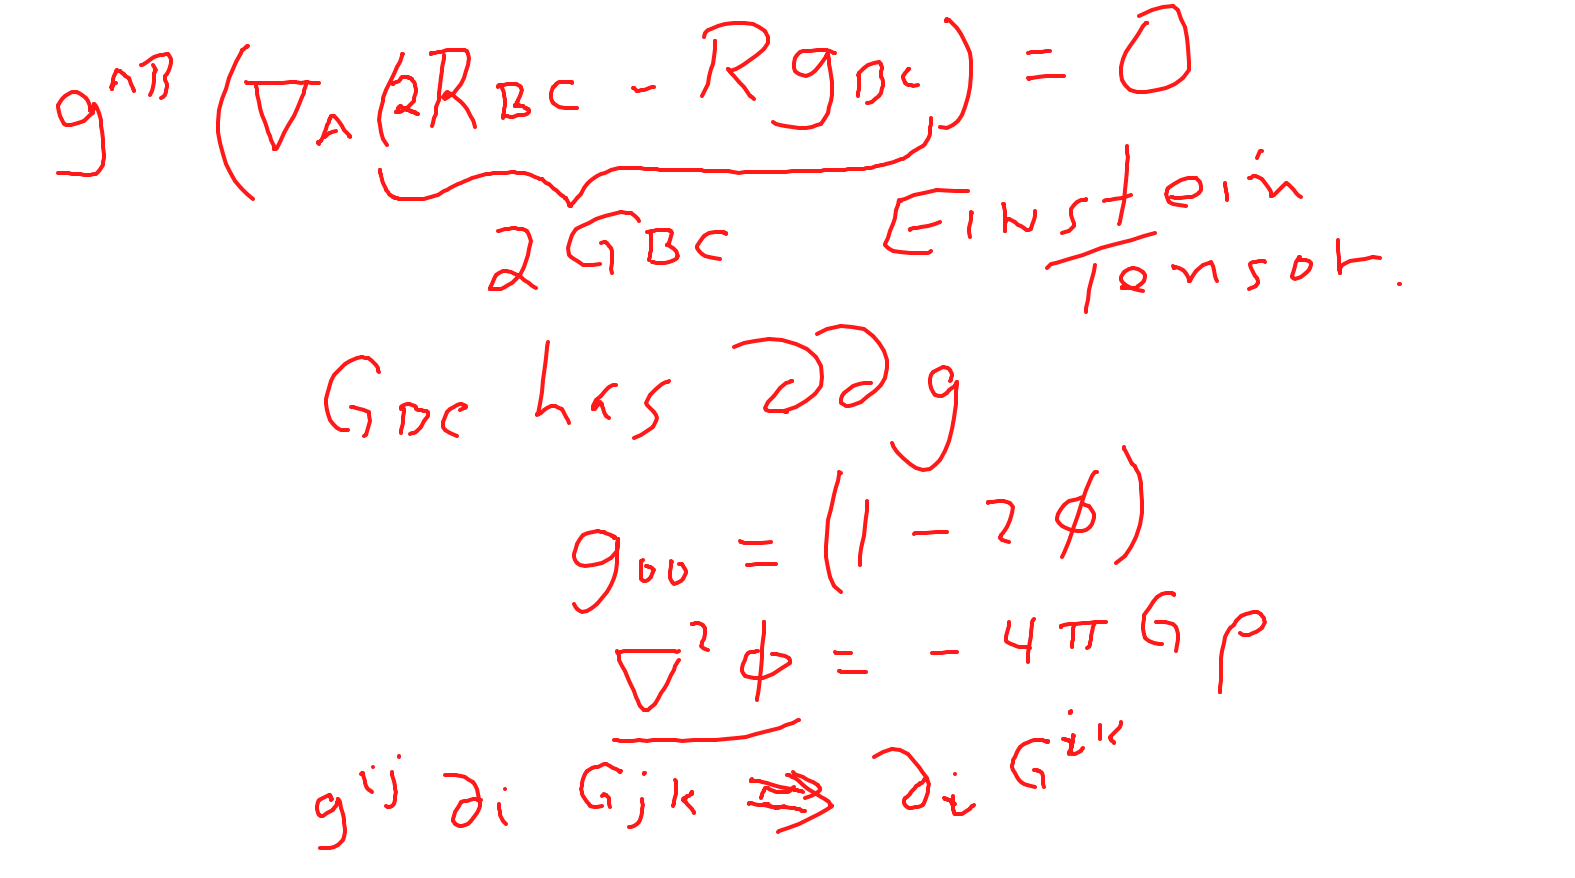 g^{AB} (∇_A (2R_{BC} - R g_{BC}) = 0
2 G_{BC} Einstein
Tensor.
G_{BC} has ∂∂g
g_{00} = (1 - 2φ)
∇²φ = - 4πGρ
g^{ij} ∂_i G_{jk} ⇒ ∂_i G^{ik}